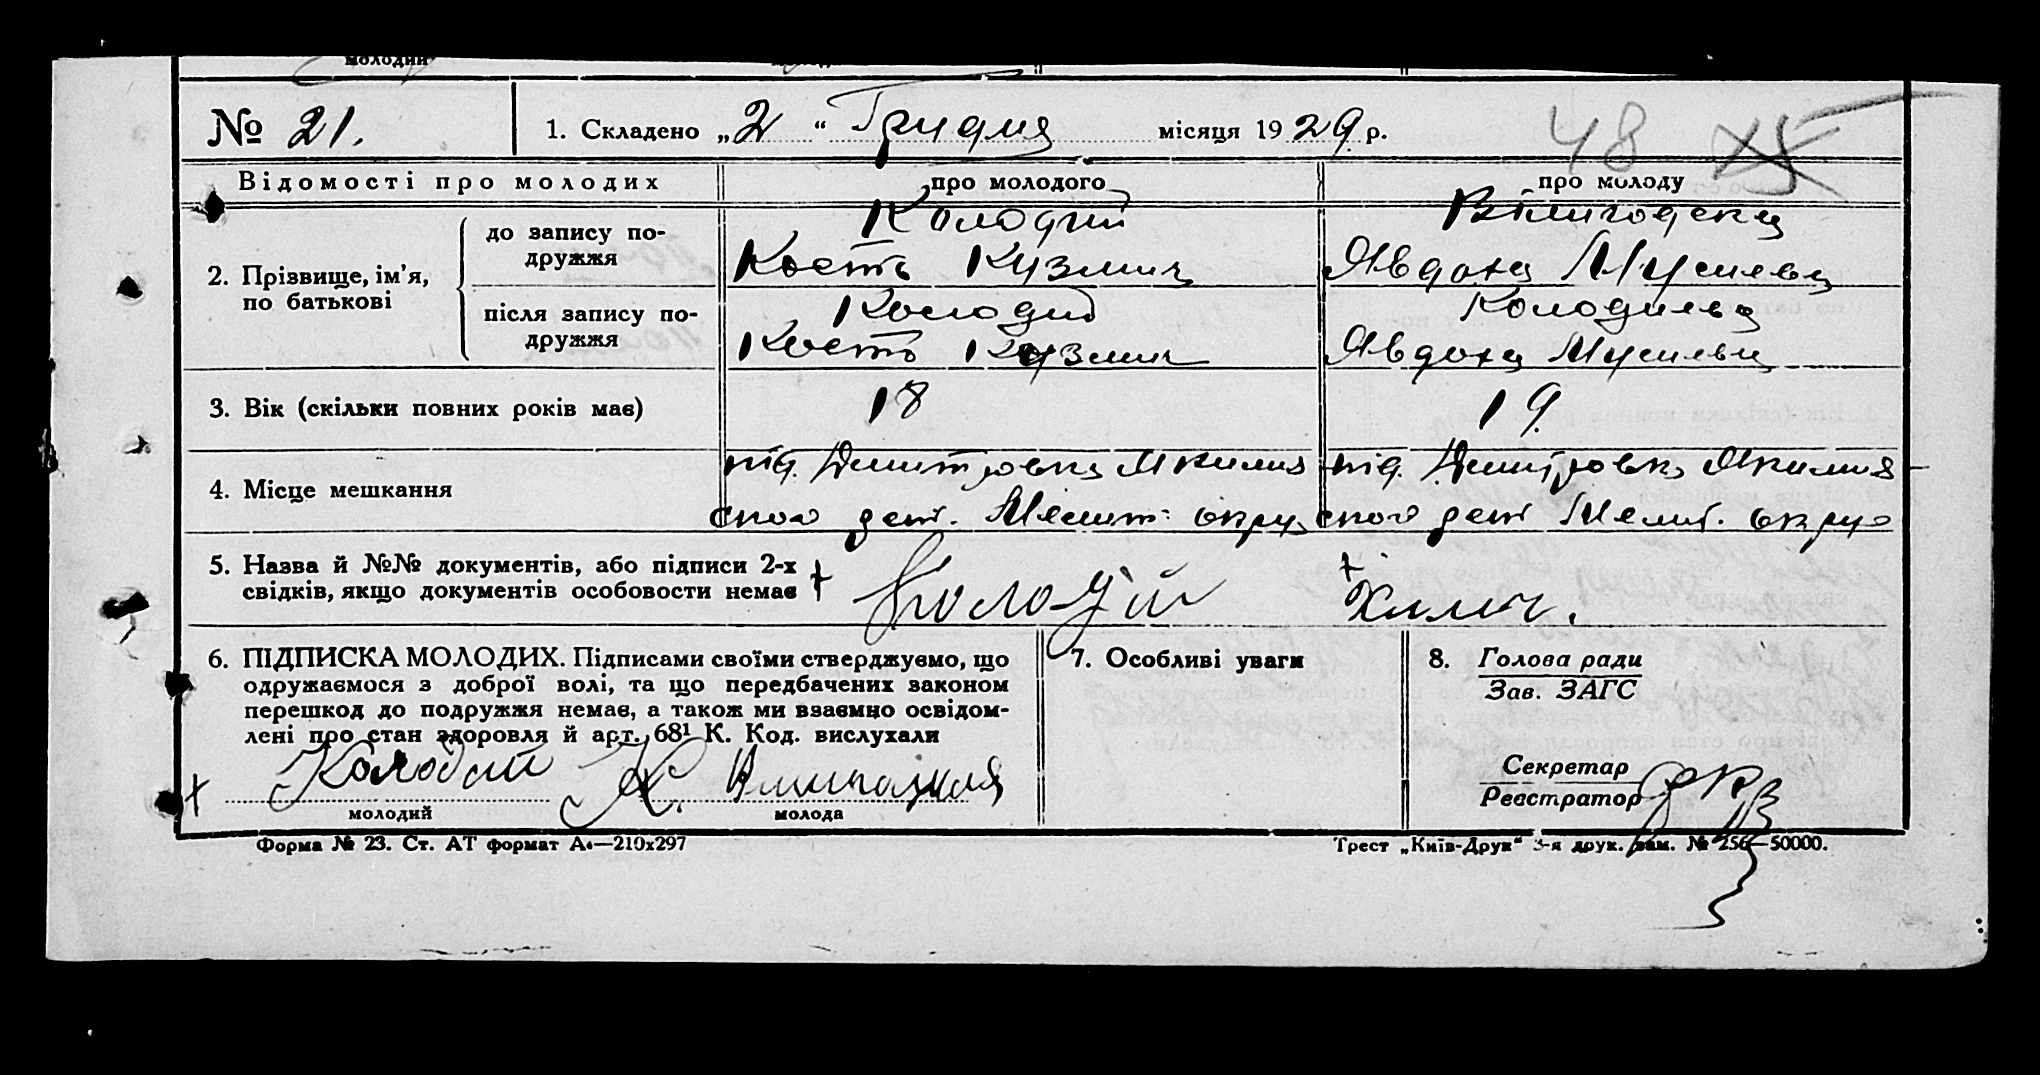 молодий
№ 21. 1. Складено „2“ Грудня місяця 1929 р. 48
Відомості про молодих про молодого про молоду
2. Прізвище, ім’я, по батькові
до запису подружжя
Колодій
Кость Кузмич
Явдоха Мусиевн
після запису подружжя
Колодій
Кость Кузмич
Колодиева
Явдоха Мусиевн
3. Вік (скільки повних років має) 18 19.
4. Місце мешкання
під. Дмитровка Якимив
ского рет. Меліт. округ
під. Дмитровка Якимив
ского рет Меліт. округ
5. Назва й №№ документів, або підписи 2-х
свідків, якщо документів особовости немає
+ Колодій + Химич.
6. ПІДПИСКА МОЛОДИХ. Підписами своїми стверджуємо, що
одружаємося з доброї волі, та що передбачених законом
перешкод до подружжя немає, а також ми взаємно освідом-
лені про стан здоровля й арт. 68¹ К. Код. вислухали
+ Колодий
молодий молода
7. Особливі уваги
8. Голова ради
Зав. ЗАГС
Секретар
Реєстратор
Форма № 23. Ст. АТ формат А4—210x297
Трест „Київ-Друк“ 3-я друк. зам. № 256—50000.